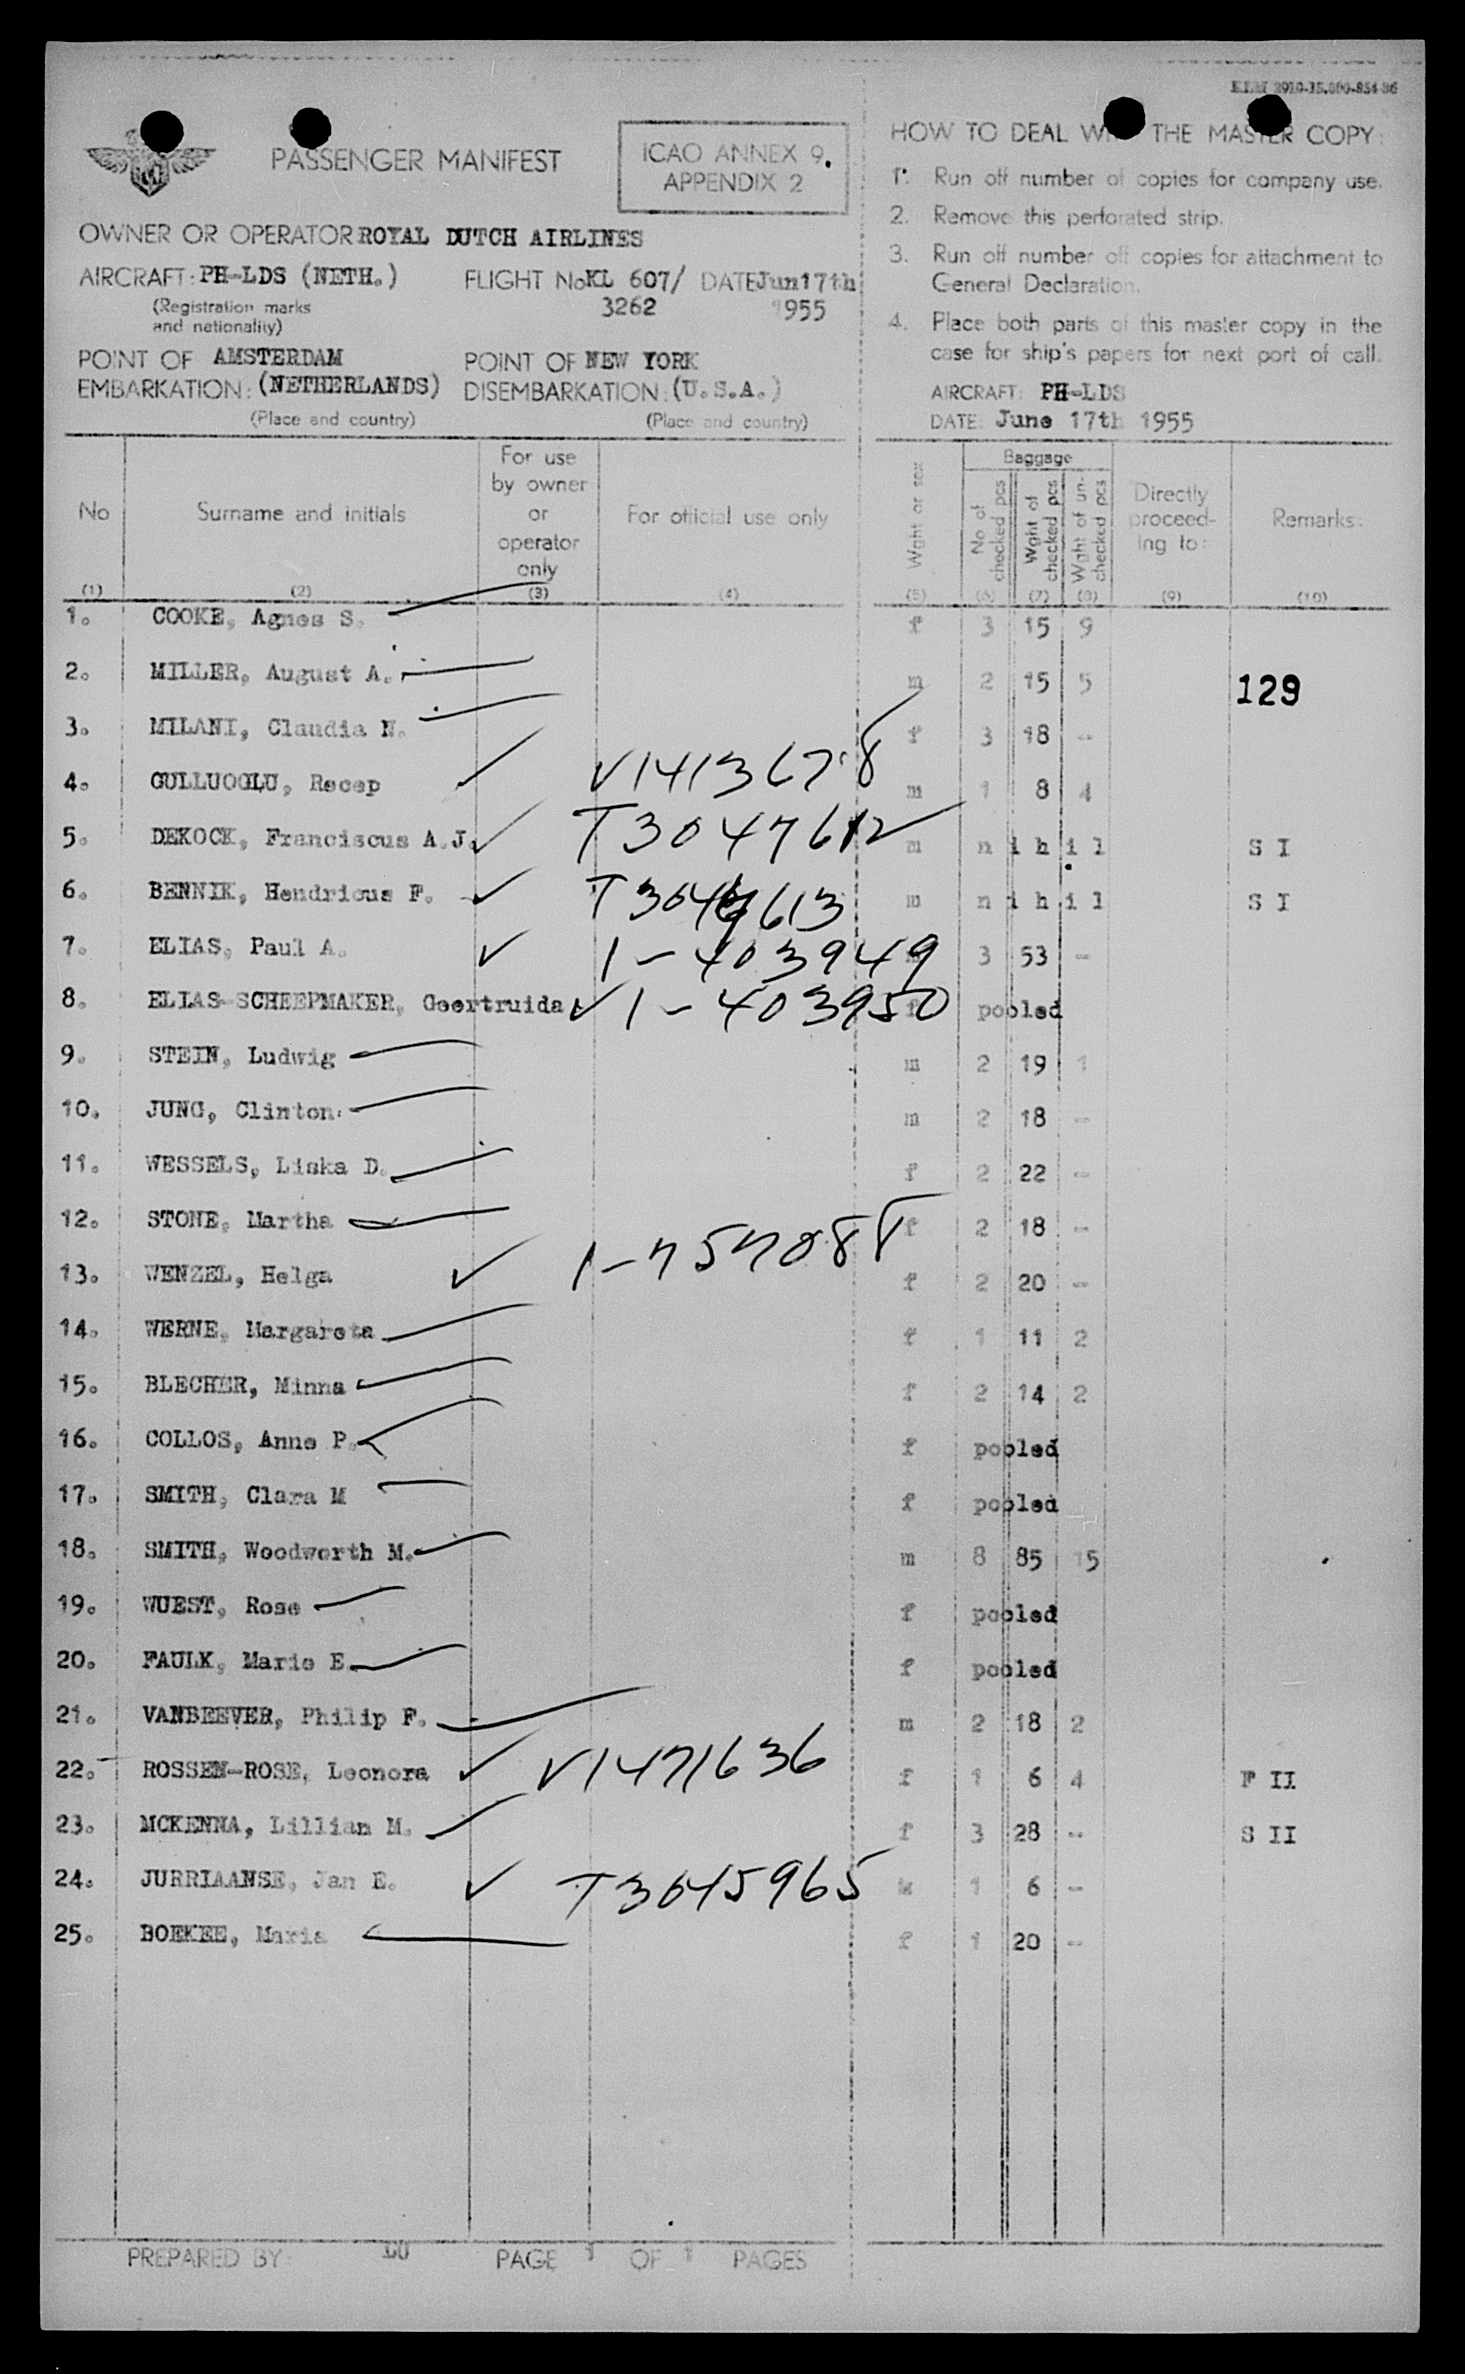 KLM 2910-15.000-854-36
PASSENGER MANIFEST
ICAO ANNEX 9.
APPENDIX 2
OWNER OR OPERATOR ROYAL DUTCH AIRLINES
AIRCRAFT: PH-LDS (NETH.) FLIGHT No KL 607/ DATE Jun 17th
(Registration marks and nationality) 3262 1955
POINT OF AMSTERDAM POINT OF NEW YORK
EMBARKATION: (NETHERLANDS) DISEMBARKATION: (U.S.A.)
(Place and country) (Place and country)
HOW TO DEAL THE MASTER COPY:
1. Run off number of copies for company use.
2. Remove this perforated strip.
3. Run off number off copies for attachment to
General Declaration.
4. Place both parts of this master copy in the
case for ship's papers for next port of call.
AIRCRAFT: PH-LDS
DATE: June 17th 1955
No Surname and initials For use by owner or operator only For official use only Wght or sex Baggage No of checked pcs Wght of checked pcs Wght of un-checked pcs Directly proceed-ing to: Remarks:
(1) (2) (3) (4) (5) (6) (7) (8) (9) (10)
1. COOKE, Agnes S. f 3 15 9
2. MILLER, August A. m 2 15 5 129
3. MILANI, Claudia N. f 3 18 -
4. GULLUOGLU, Recep V1413678 m 1 8 4
5. DEKOCK, Franciscus A.J. T3047612 m nihil S I
6. BENNIK, Hendricus F. T3047613 m nihil S I
7. ELIAS, Paul A. 1-403949 3 53 -
8. ELIAS-SCHEEPMAKER, Geertruida 1-403950 f pooled
9. STEIN, Ludwig m 2 19 1
10. JUNG, Clinton m 2 18 -
11. WESSELS, Liska D. f 2 22 -
12. STONE, Martha f 2 18 -
13. WENZEL, Helga 1-757088 f 2 20 -
14. WERNE, Margareta f 1 11 2
15. BLECHER, Minna f 2 14 2
16. COLLOS, Anne P. f pooled
17. SMITH, Clara M f pooled
18. SMITH, Woodworth M. m 8 85 15
19. WUEST, Rose f pooled
20. FAULK, Marie E. f pooled
21. VANBEEVER, Philip F. m 2 18 2
22. ROSSEN-ROSE, Leonora V1471636 f 1 6 4 F II
23. MCKENNA, Lillian M. f 3 28 - S II
24. JURRIAANSE, Jan E. T3045965 1 6 -
25. BOEKEE, Maria f 1 20 -
PREPARED BY: PAGE 1 OF 1 PAGES